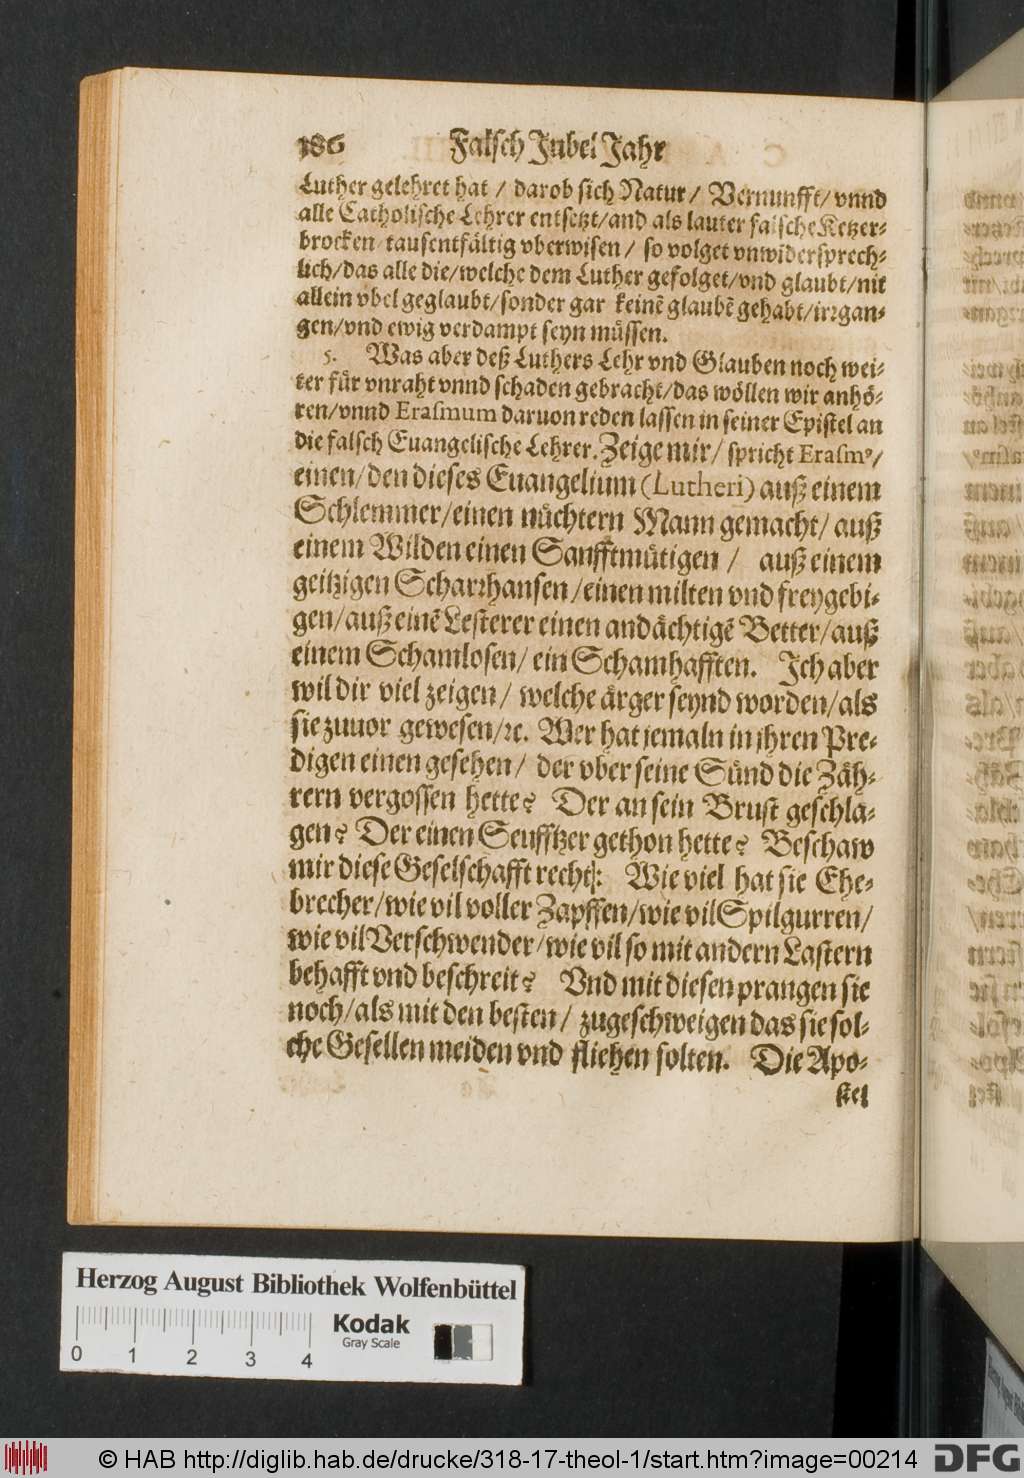 186 Falsch Jubel Jahr
Luther gelehret hat / darob sich Natur / Vernunfft / vnnd
alle Catholische Lehrer entsetzt/and als lauter falsche Ketzer-
brocken tausentfältig vberwisen / so volget vnwidersprech-
lich/das alle die/welche dem Luther gefolget/vnd glaubt/nit
allein vbel geglaubt/sonder gar keinẽ glaubẽ gehabt/irrgan-
gen/vnd ewig verdampt seyn müssen.
5. Was aber deß Luthers Lehr vnd Glauben noch wei-
ter für vnraht vnnd schaden gebracht/das wöllen wir anhö-
ren/vnnd Erasmum daruon reden lassen in seiner Epistel an
die falsch Euangelische Lehrer. Zeige mir/ spricht Erasmꝰ/
einen/den dieses Euangelium (Lutheri) auß einem
Schlemmer/einen nüchtern Mann gemacht/ auß
einem Wilden einen Sanfftmütigen / auß einem
geitzigen Scharrhansen /einen milten vnd freygebi-
gen/auß einẽ Lesterer einen andächtigẽ Better/auß
einem Schamlosen/ ein Schamhafften. Ich aber
wil dir viel zeigen / welche ärger seynd worden/als
sie zuuor gewesen/ꝛc. Wer hat jemaln in jhren Pre-
digen einen gesehen / der vber seine Sünd die Zäh-
rern vergossen hette? Der an sein Brust geschla-
gen? Der einen Seufftzer gethon hette? Beschaw
mir diese Geselschafft recht: Wie viel hat sie Ehe-
brecher/wie vil voller Zapffen/wie vil Spilgurren/
wie vil Verschwender/wie vil so mit andern Lastern
behafft vnd beschreit? Vnd mit diesen prangen sie
noch/als mit den besten / zugeschweigen das sie sol-
che Gesellen meiden vnd fliehen solten. Die Apo-
stel
Herzog August Bibliothek Wolfenbüttel
Kodak
Gray Scale
0 1 2 3 4
© HAB http://diglib.hab.de/drucke/318-17-theol-1/start.htm?image=00214
DFG